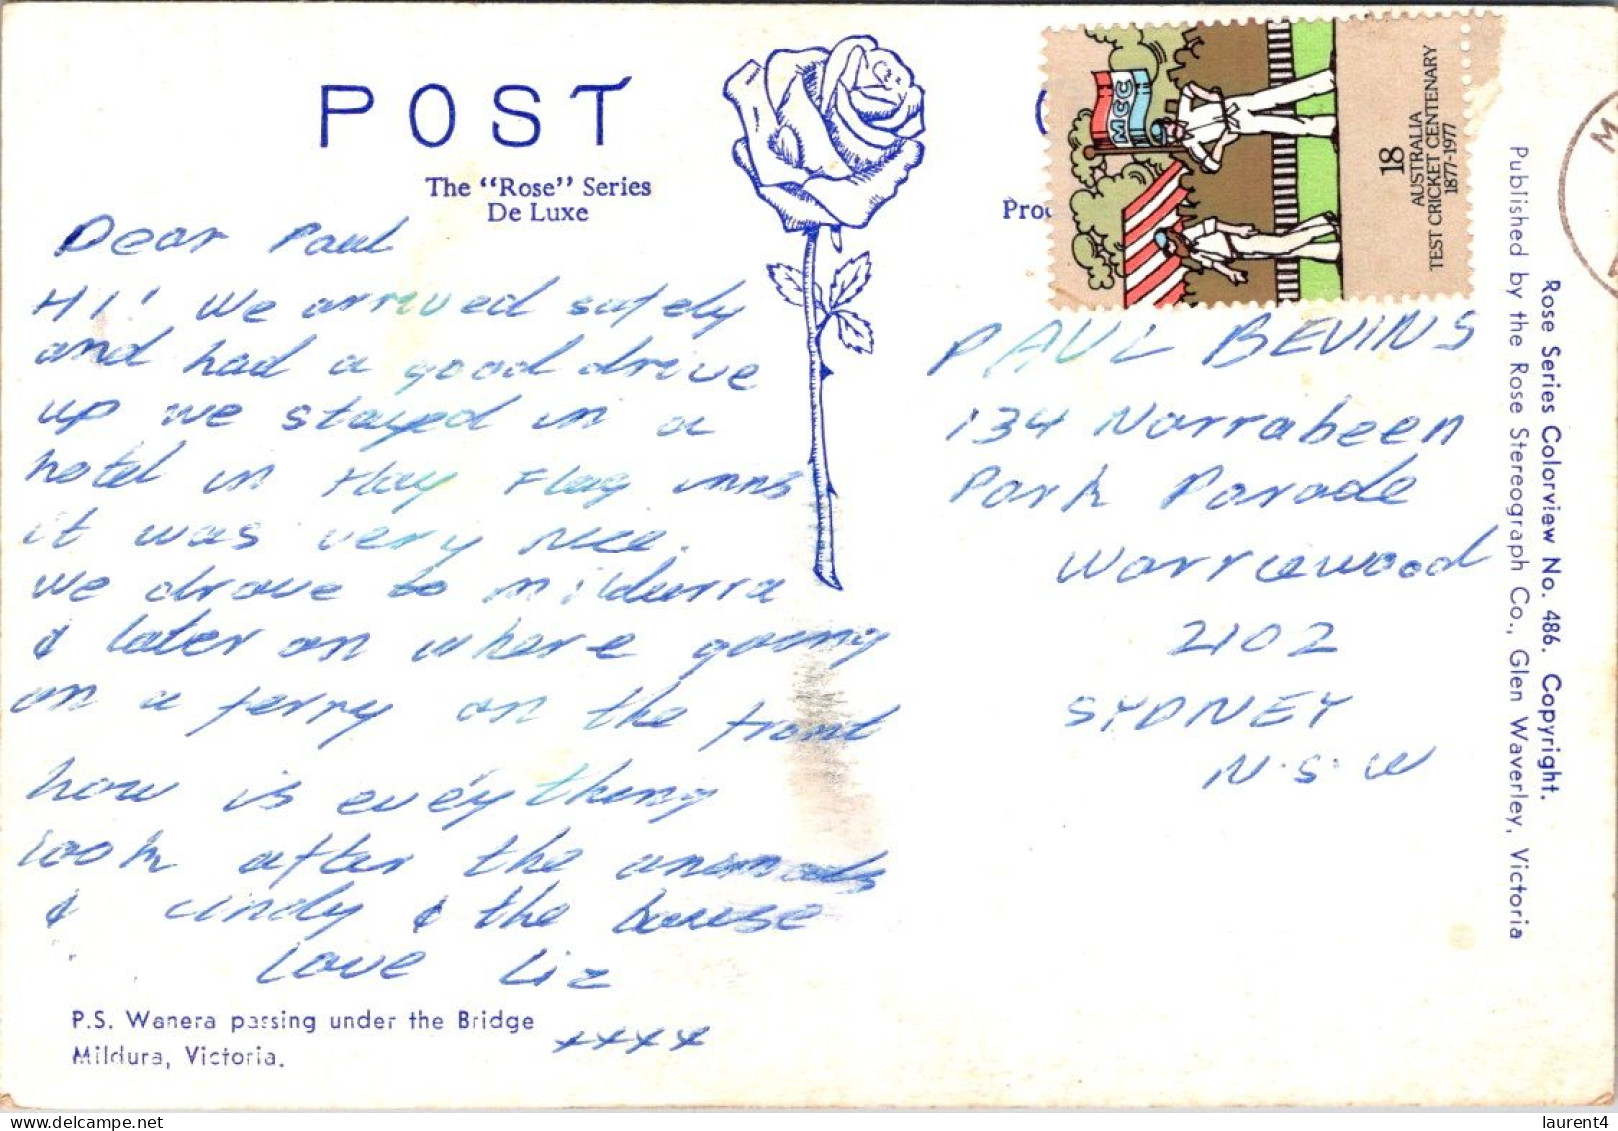 POST
The “Rose” Series
De Luxe
Dear Paul
Hi! we arrived safely
and had a good drive
up we stayed in a
hotel in Hay Flag inns
it was very nice.
we drove to mildurra
& later on where going
on a ferry on the front
how is eve'ything
look after the animals
& cindy & the house
Love Liz
xxxx
P.S. Wanera passing under the Bridge
Mildura, Victoria.
MCC
18
AUSTRALIA
TEST CRICKET CENTENARY
1877-1977
PAUL BEVINS
134 Narrabeen
Park Parade
Warriewood
2102
SYDNEY
N.S.W
Rose Series Colorview No. 486. Copyright.
Published by the Rose Stereograph Co., Glen Waverley, Victoria
laurent4